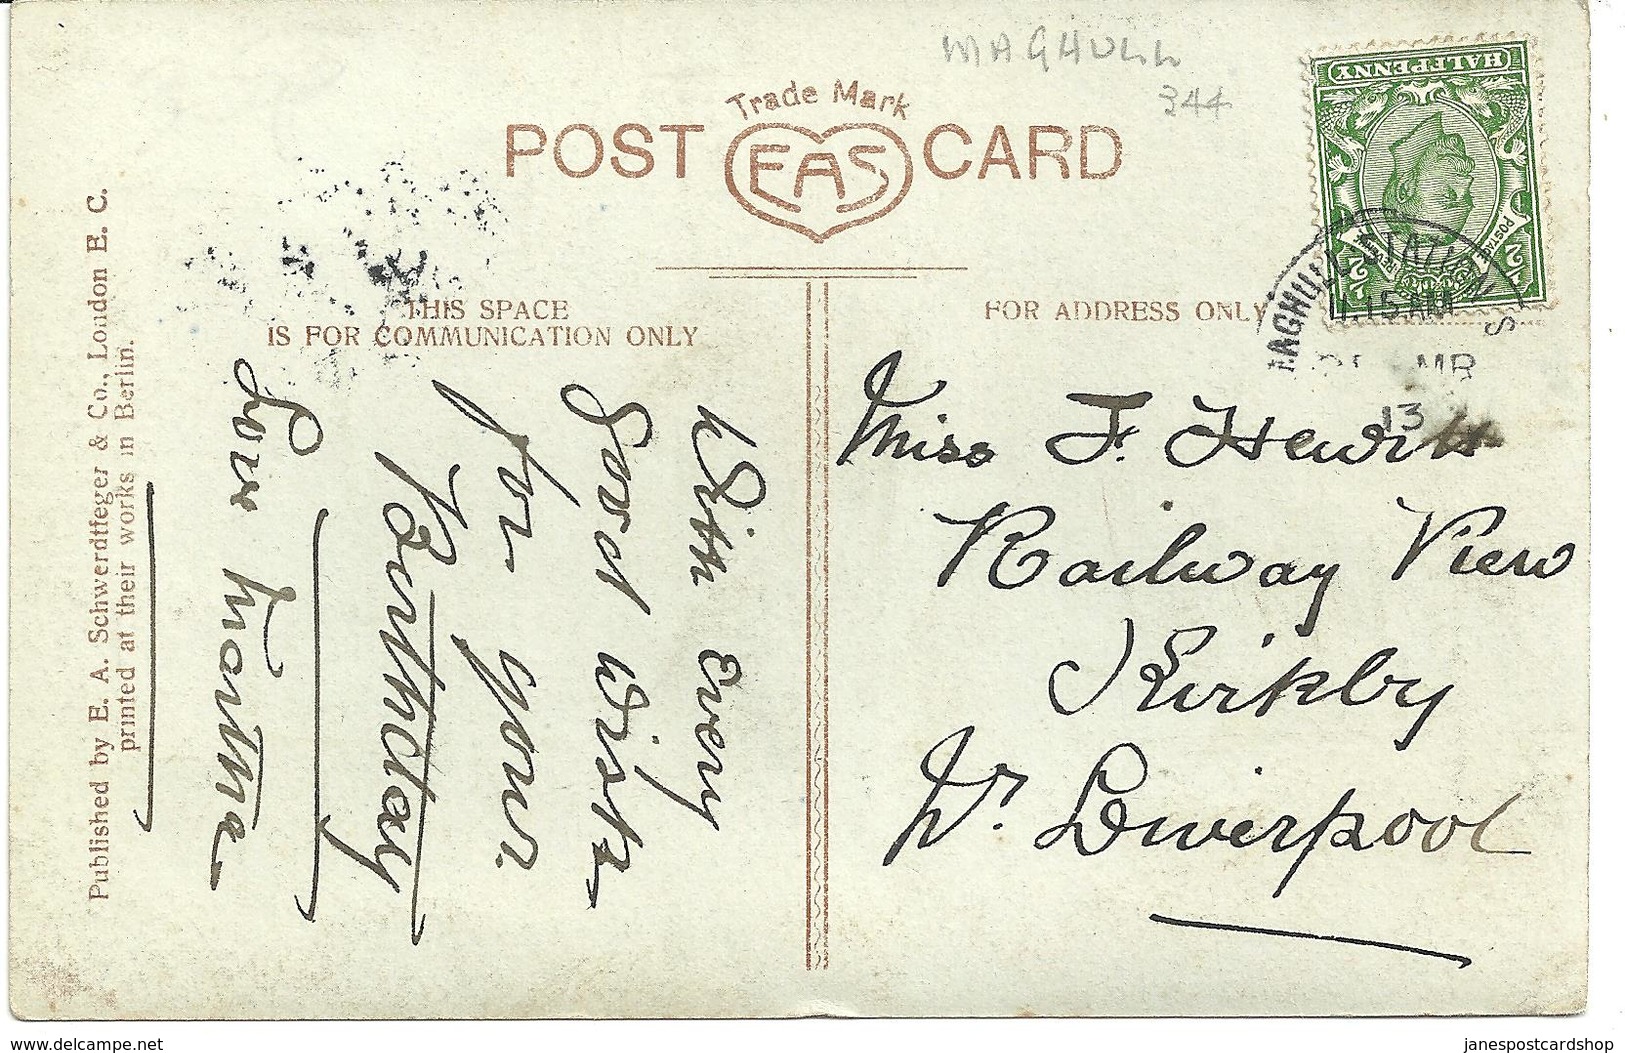 MAGHULL
344
Trade Mark
POST EAS CARD
HALFPENNY
POSTAGE
REVENUE
MAGHULL STATION
11.15 AM
MR
13
THIS SPACE
IS FOR COMMUNICATION ONLY
FOR ADDRESS ONLY
With every
Good Wish
for your
Birthday
Love Martha
Miss F. Hewitt
Railway View
Kirkby
Nr. Liverpool
Published by E. A. Schwerdtfeger & Co., London E. C.
printed at their works in Berlin.
www.delcampe.net
janespostcardshop